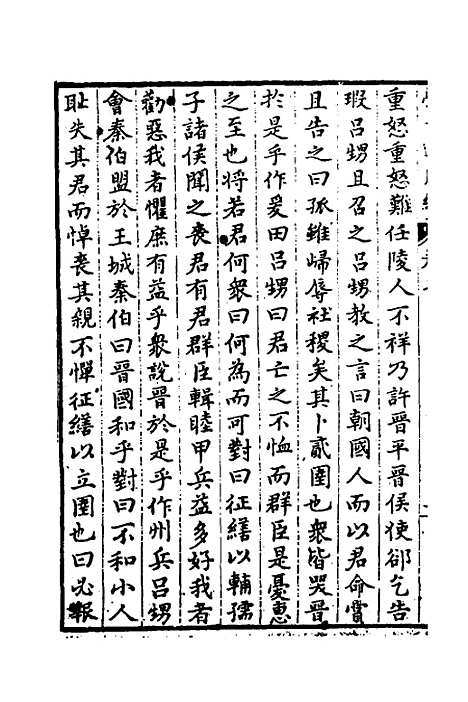 重怒重怒難任陵人不祥乃許晉平晉侯使郤乞告
瑕吕甥且召之吕甥教之言曰朝國人而以君命賞
且告之曰孤雖歸辱社稷矣其卜貳圉也衆皆哭晉
於是乎作爰田吕甥曰君亡之不恤而群臣是憂惠
之至也将若君何衆曰何為而可對曰征繕以輔孺
子諸侯聞之喪君有君群臣輯睦甲兵益多好我者
勸惡我者懼庶有益乎衆說晉於是乎作州兵吕甥
會秦伯盟於王城秦伯曰晉國和乎對曰不和小人
耻失其君而悼喪其親不憚征繕以立圉也曰必報